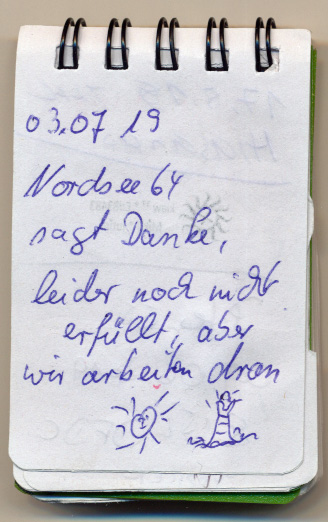 03.07 19
Nordsee 64
sagt Danke,
leider noch nicht
erfüllt, aber
wir arbeiten dran